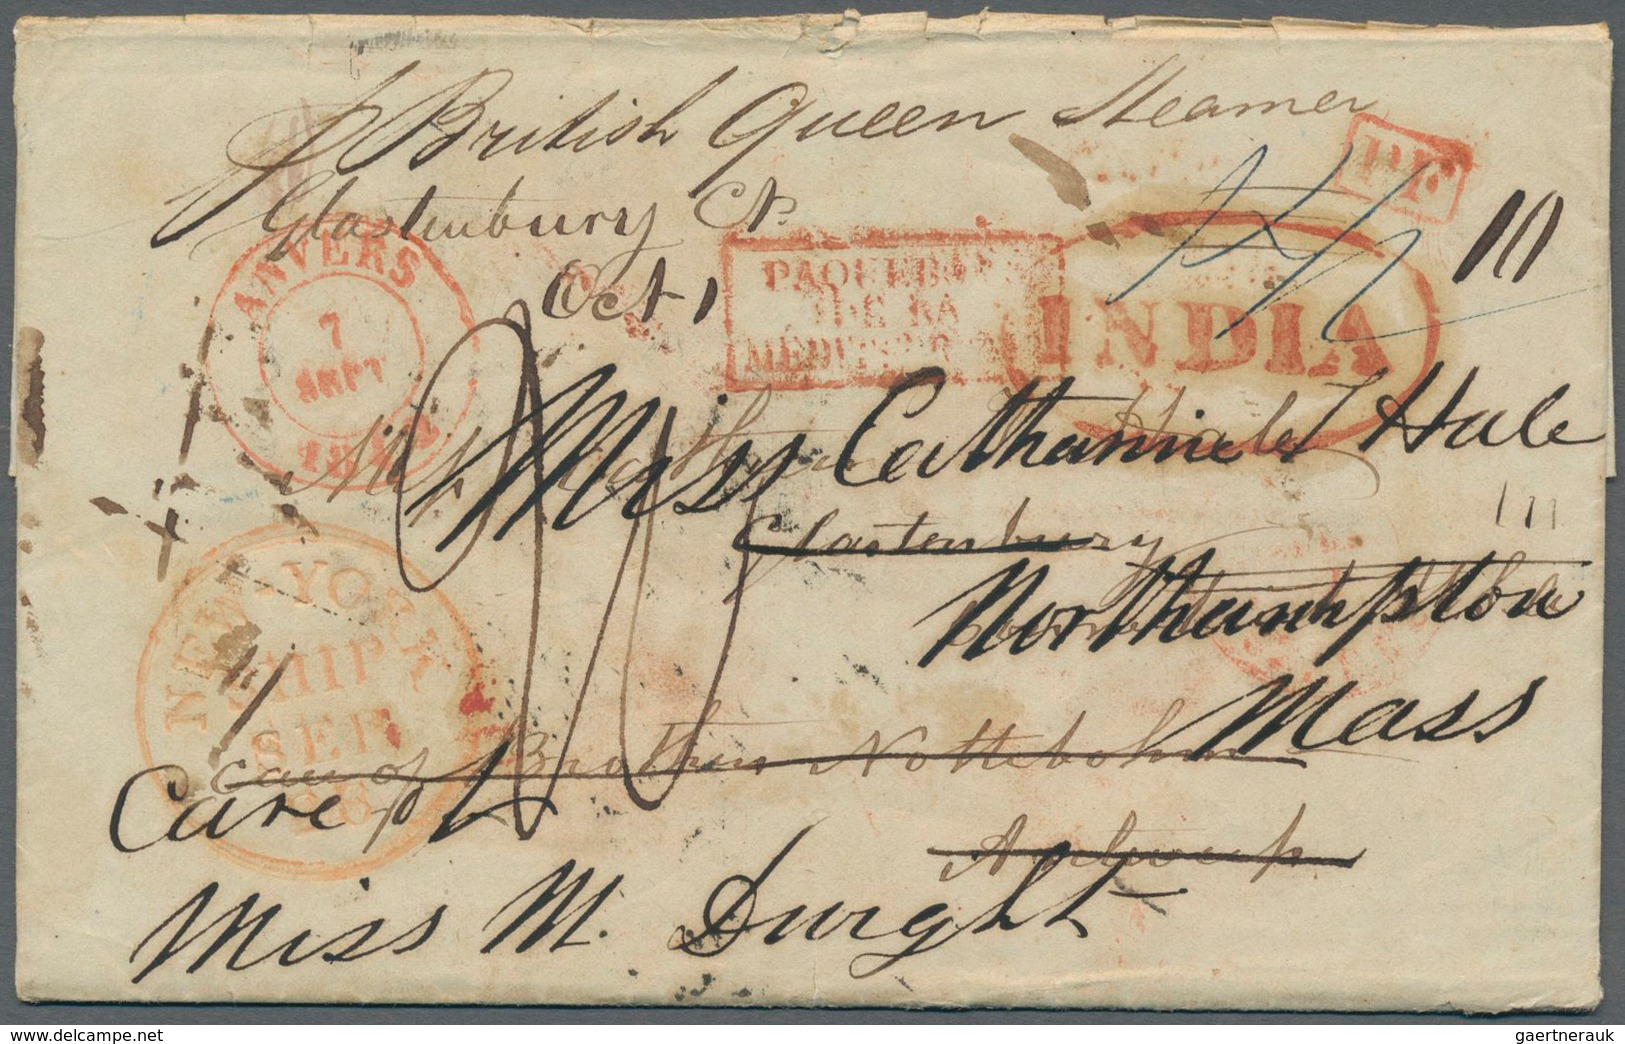 British Queen Steamer
PF.
Glastenbury Ct.
Oct 1
10
ANVERS
7
SEPT
PAQUEBOTS
DE LA
INDIA
Miss Cathanniel T Hale
Glastenbury
Northampton
Mass
NEW-YORK
SHIP
SEP
Care of Brothers Nottebohm
Antwerp
Care of
Miss M. Dwight
gaertnerauk